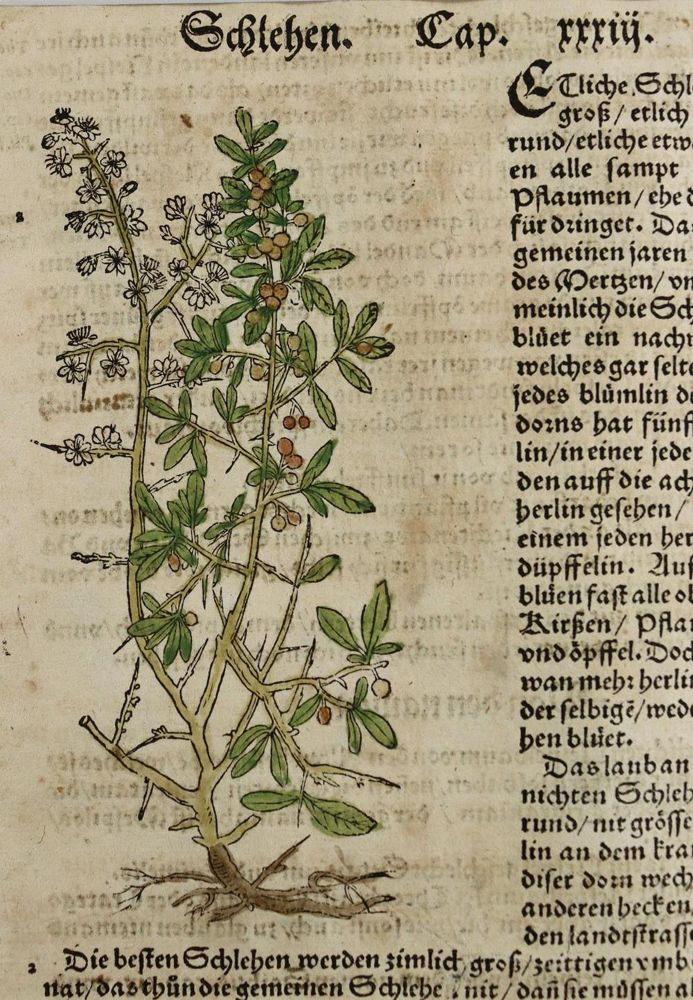 Schlehen. Cap. xxxiij.
ETliche Schl
groß/ etlich
rund/etliche etw
en alle sampt
Pflaumen/ ehe d
für dringet. Da
gemeinen jaren
des Mertzen/ vn
meinlich die Sch
blüet ein nach
welches gar selte
jedes blümlin d
dorns hat fünff
lin/in einer jede
den auff die ach
herlin gesehen/
einem jeden her
düpffelin. Auf
blüen fast alle ob
Kirßen/ Pflau
vnd öpffel. Doch
wan mehr herlin
der selbigē/wede
hen blüet.
Das laub an
nichten Schleh
rund/nit grösse
lin an dem kra
diser dorn wech
anderen hecken,
den landtstrass
2 Die besten Schlehen werden zimlich groß/zeittigen vmb
nat/das thůn die gemeinen Schlehē nit/ dañ sie müssen a